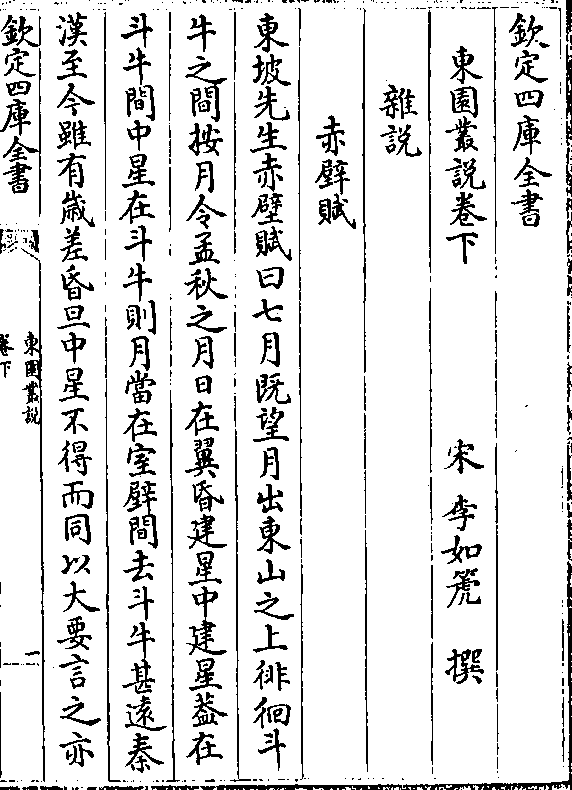 欽定四庫全書
東園叢說卷下
宋 李如箎 撰
雜說
赤壁賦
東坡先生赤壁賦曰七月既望月出東山之上徘徊斗
牛之間按月令孟秋之月日在翼昏建星中建星葢在
斗牛間中星在斗牛則月當在室壁間去斗牛甚遠秦
漢至今雖有歲差昏旦中星不得而同以大要言之亦
欽定四庫全書
東園叢說
卷下
一